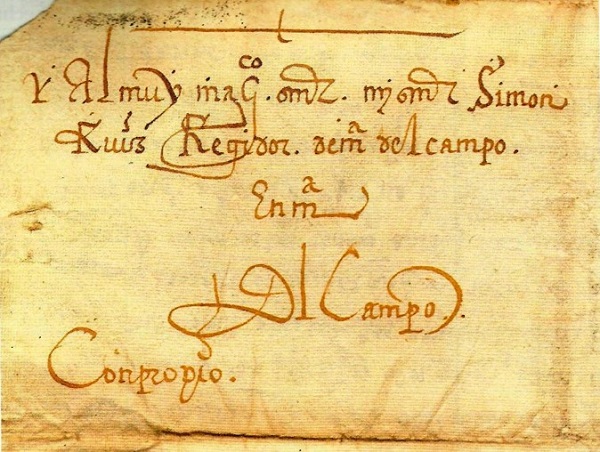 Al muy mag^co. mj Simon
Ruiz Regidor. de m^a del campo.
En m^a
Del Campo.
Con propio.